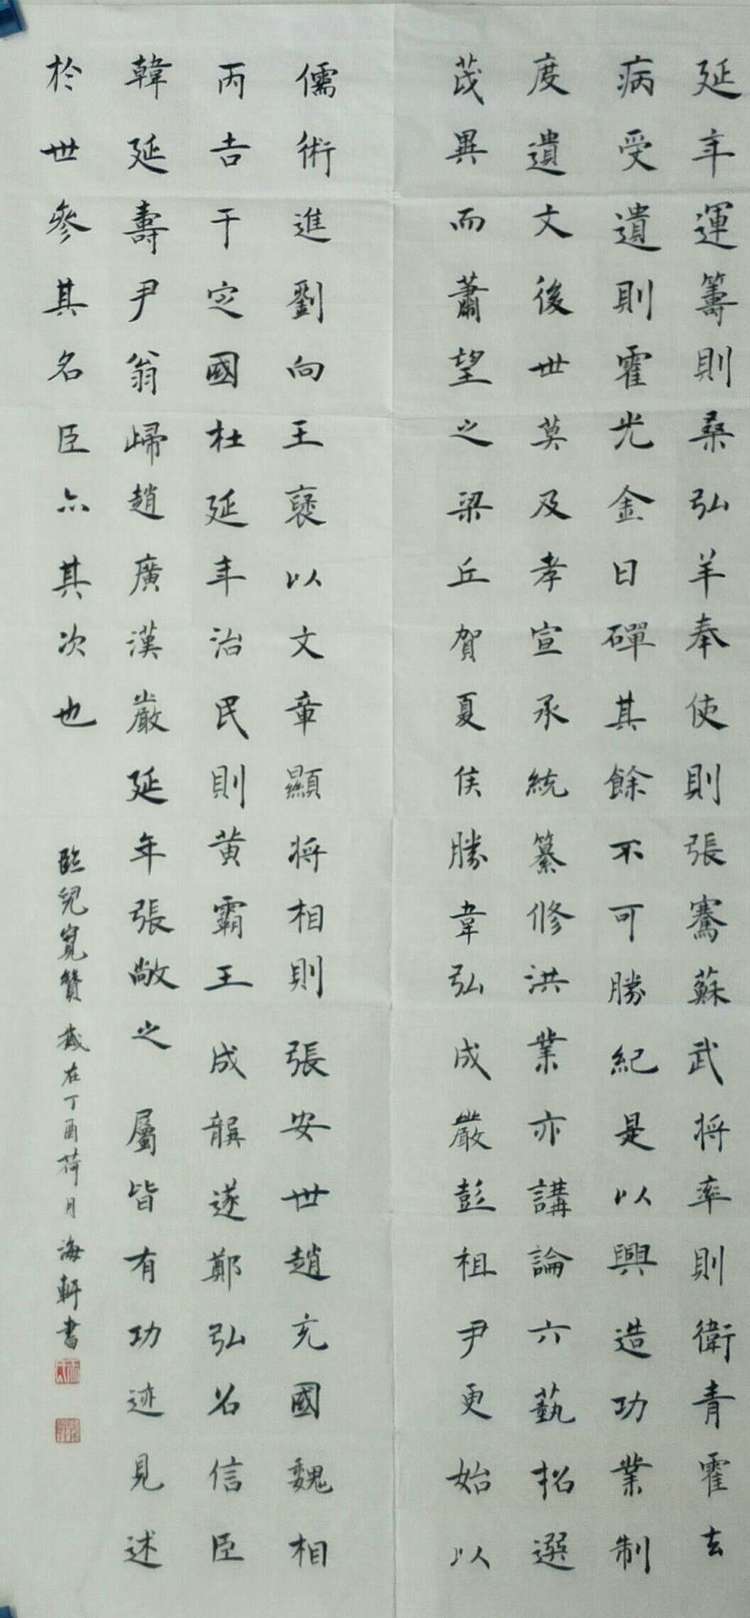 延年運籌則桑弘羊奉使則張騫蘇武將率則衛青霍去
病受遺則霍光金日磾其餘不可勝紀是以興造功業制
度遺文後世莫及孝宣承統纂修洪業亦講論六藝招選
茂異而蕭望之梁丘賀夏侯勝韋弘成嚴彭祖尹更始以
儒術進劉向王襃以文章顯將相則張安世趙充國魏相
丙吉于定國杜延年治民則黄霸王成龔遂鄭弘召信臣
韓延壽尹翁歸趙廣漢嚴延年張敞之屬皆有功迹見述
於世參其名臣亦其次也
臨兒寬贊歲在丁酉荷月海軒書